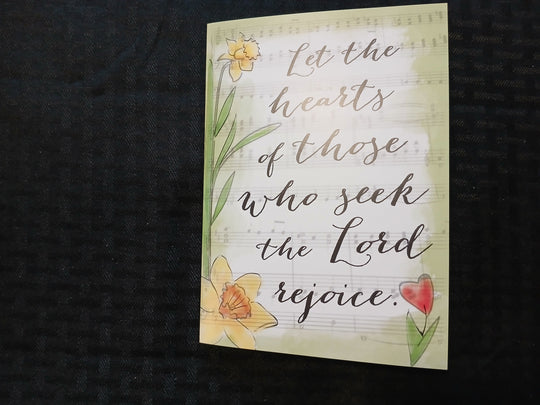 Let the
hearts
of those
who seek
the Lord
rejoice.